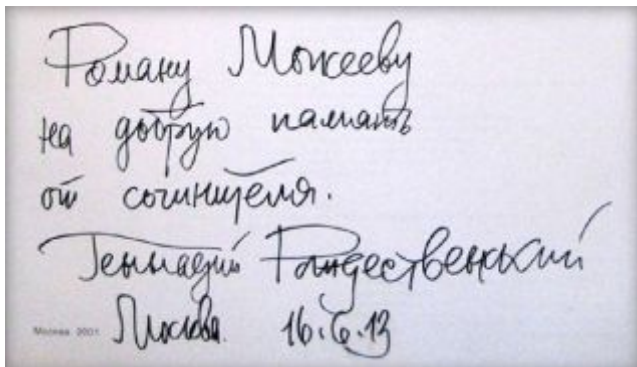 РомануМожееву
на добрую память
от сочинителя.
Геннадий Рождественский
Москва 2001 Москва. 16.6.13